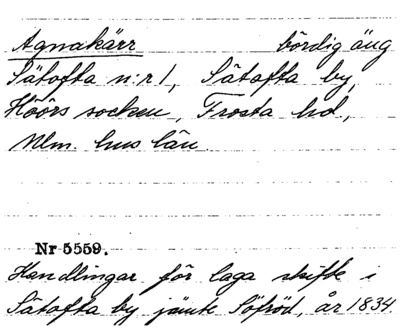 Agnakärr bördig äng
Sätofta n:r 1, Sätofta by,
Höörs socken, Frosta hd,
Mlm. hus län.
Nr 5559.
Handlingar för laga skifte i
Sätofta by jämte Söfröd, år 1834.